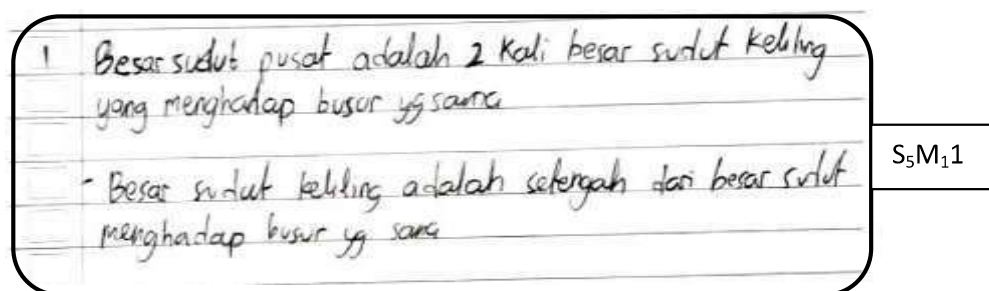 1 Besar sudut pusat adalah 2 kali besar sudut keliling
yang menghadap busur yg sama
- Besar sudut keliling adalah setengah dari besar sudut
menghadap busur yg sama
S₅M₁1